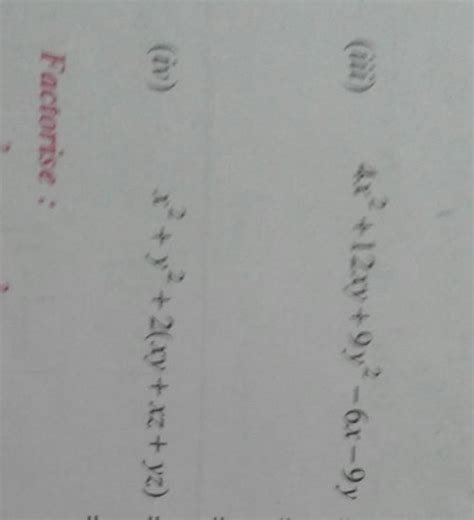 (iii) 4x² + 12xy + 9y² − 6x − 9y
(iv) x² + y² + 2(xy + xz + yz)
Factorise :